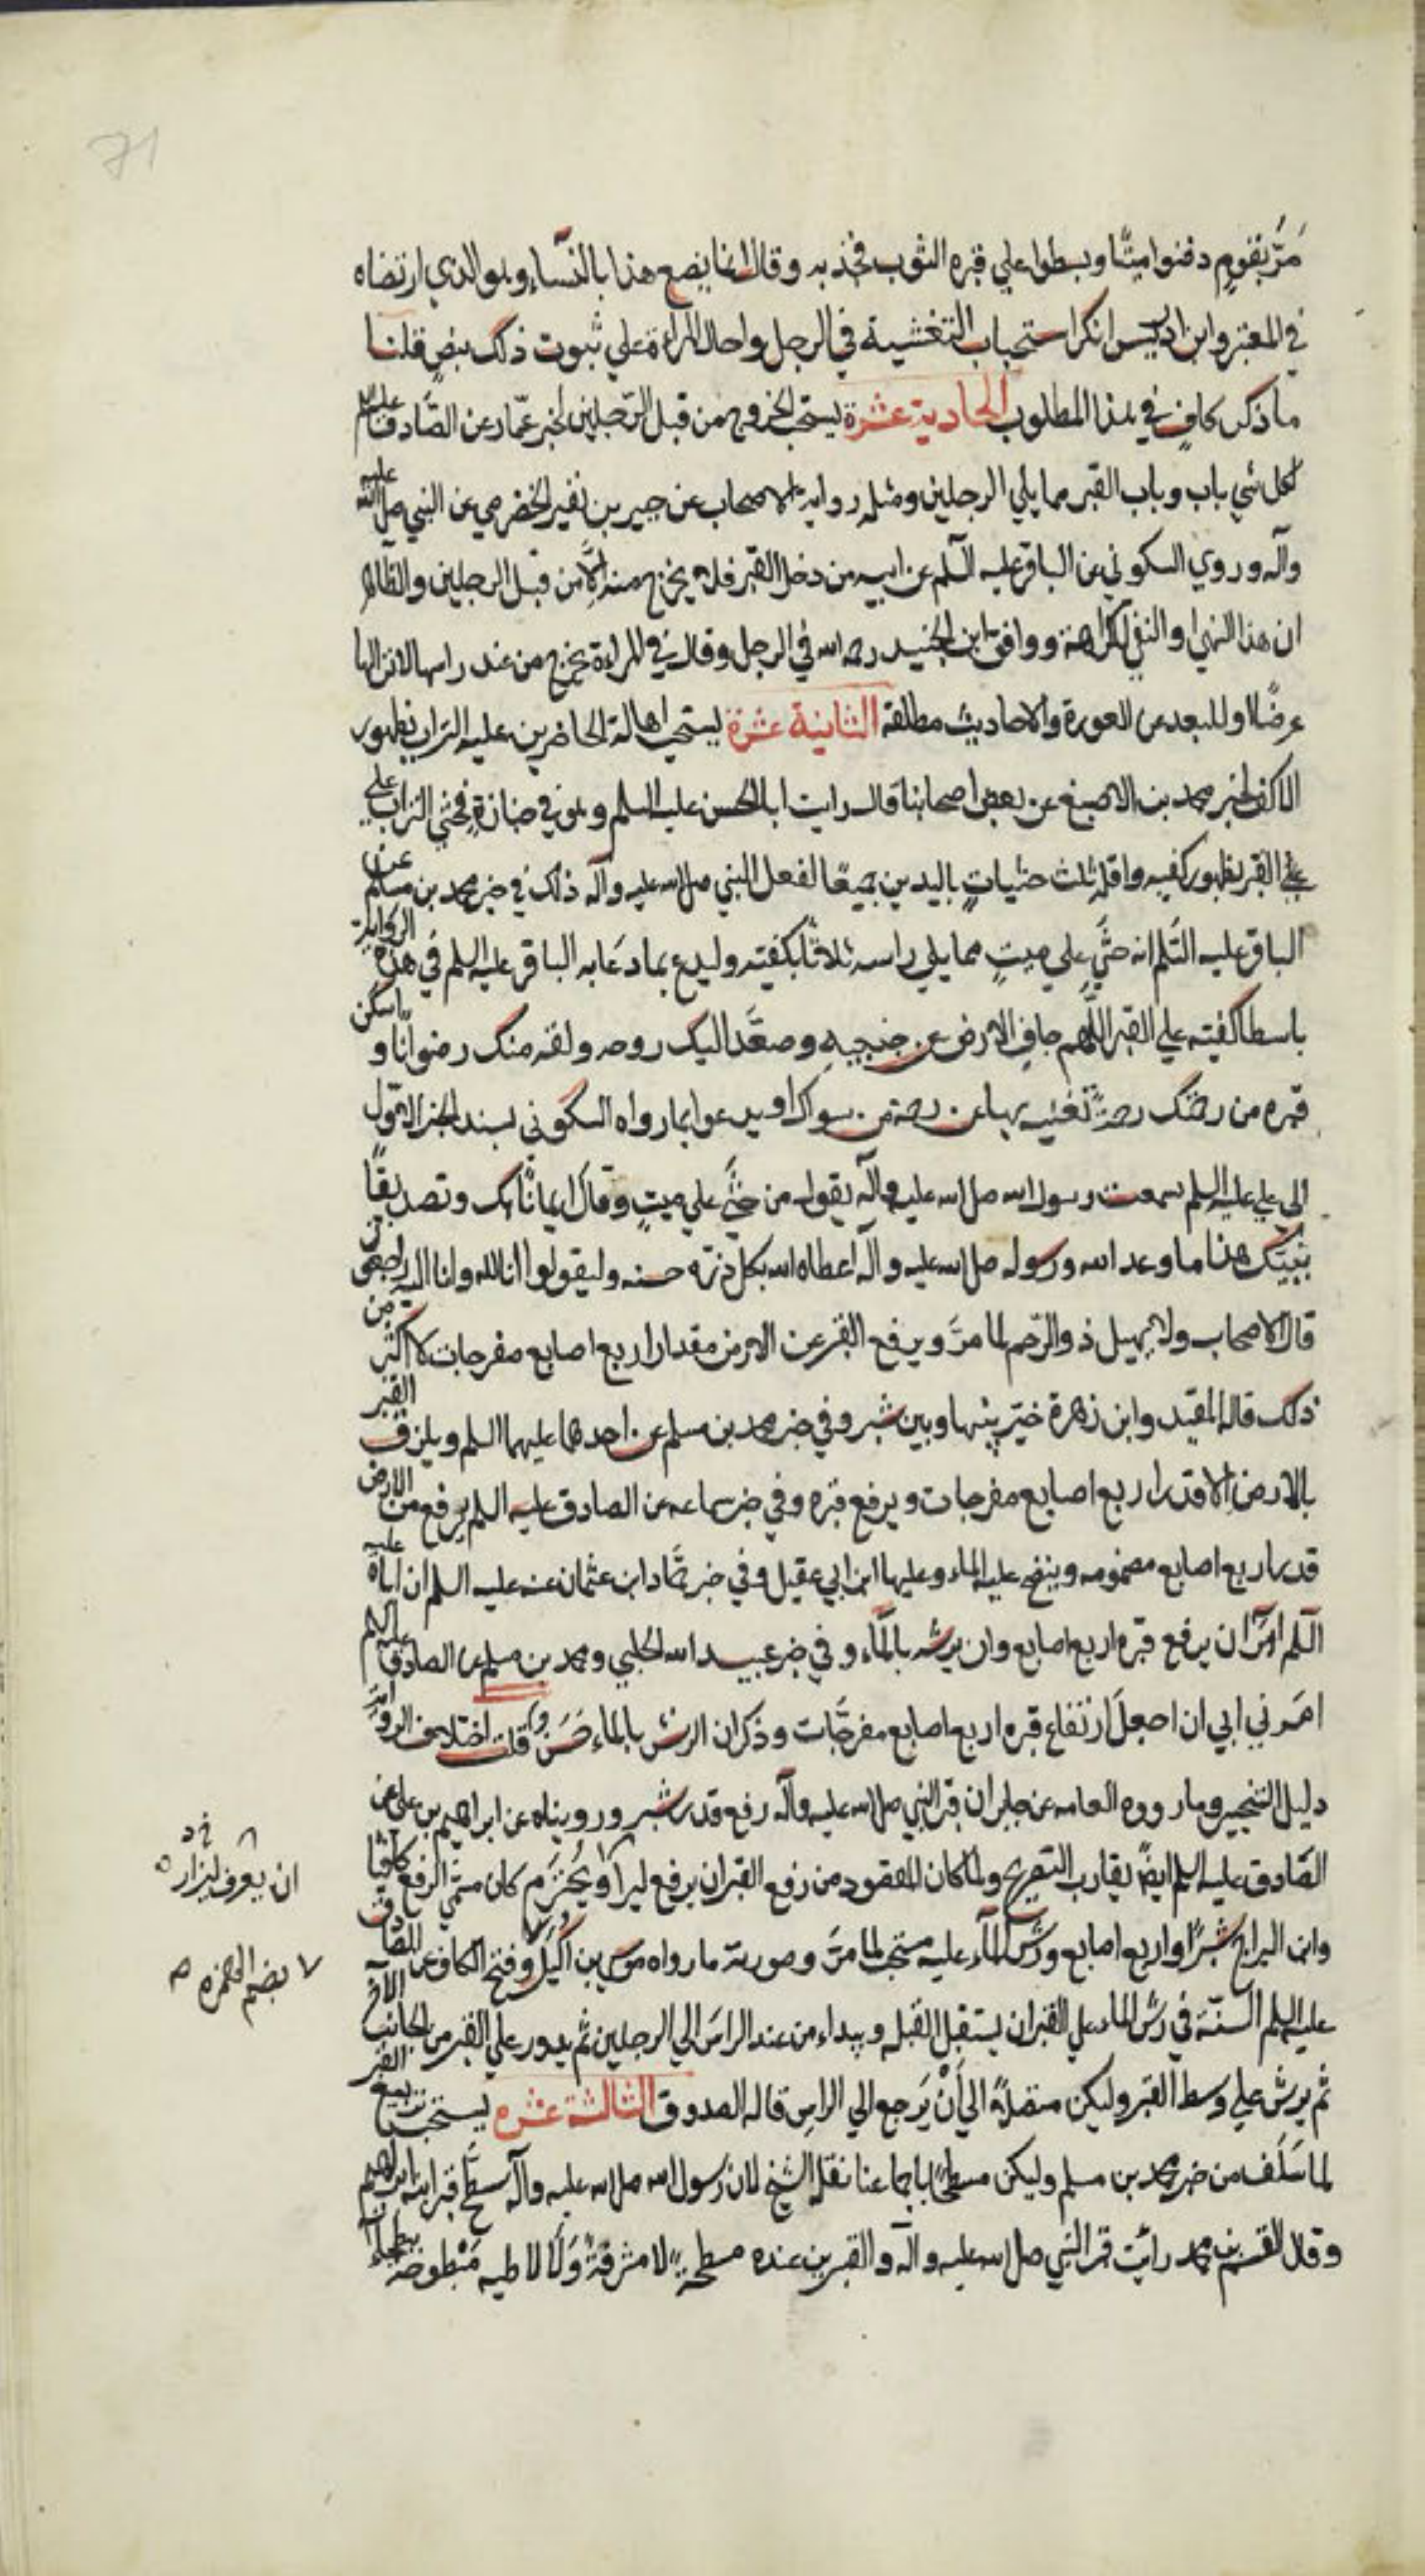 71
مَرَّ بقومٍ دفنوا ميتًا وبسطوا علي قبره الثوب فجذبه وقال انما يصنع هذا بالنسآء وهو الذي ارتضاه
في المعتبر وابن ادريس انكر استحباب التغشية في الرجل واحال المراة علي ثبوت ذلك بنص قلنا
ما ذكر كافٍ في هذا المطلوب الحادية عشرة يستحب الخروج من قبل الرّجلين لخبر عمّار عن الصَّادق عليه السلم
لكل شي باب وباب القبر مما يلي الرجلين ومثله رواية الاصحاب عن جبير بن نفير الحضرمي عن النبي صلي الله عليه
وآله وروي السكوني عن الباقر عليه السّلم عن ابيه من دخل القبر فلا يخرج منه الَّا من قبل الرجلين والظاهر
ان هذا النهي او النفي لكراهة ووافق ابن الجنيد رحمه الله في الرجل وقال في المراءة يخرج من عند راسها لانزالها
عرضًا او للبعد من العورة والاحاديث مطلقة الثانية عشرة يستحب اهالة الحاضرين عليه التراب بظهور
الاكف لخبر محمد بن الاصبغ عن بعض اصحابنا قال رايت اباالحسن عليه السلم وهو في جنازة فحثي التراب علي
علي القبر بظهور كفيه واقله ثلث حثيات باليدين جميعًا لفعل النبي صلي الله عليه وآله ذلك في خبر محمد بن مسلم عن
الباقر عليه السَّلم انه حثَّي علي ميتٍ مما يلي راسه ثلاثًا بكفّيه وليدع بما دعَا به الباقر عليه السلم في هذه الرواية
باسطا كفيه علي القبر اللَّهم جافِ الارض عن جنبيهِ وصعَّد اليك روحه ولقه منك رضوانًا واسكن
قبره من رحمتك رحمةً تغنيه بها عن رحمة من سواك او يدعوا بما رواه السكوني بسند الخبر الاوّل
الي علي عليه السلم سمعت رسول الله صلي الله عليه وآله يقول من حثَّي علي ميتٍ وقال ايمانًا بك وتصديقًا
بنبيّك هذا ما وعد الله ورسوله صلي الله عليه وآله اعطاه الله بكل ذرّة حسنه وليقولوا انا لله وانا اليه راجعون
قال الاصحاب ولا يهيل ذو الرّحم لما مرَّ ويرفع القبر عن الارض مقدار اربع اصابع مفرجات لا اكثر من
ذلك قاله المفيد وابن زهرة خيّر بينها وبين شبر وفي خبر محمد بن مسلم عن احدهما عليهما السلم ويلزق القبر
بالارض الا قدر اربع اصابع مفرجات ويرفع قبره وفي خبر سماعه عن الصادق عليه السلم يرفع من الارض
قدر اربع اصابع مضمومه وينضح عليه الماء وعليها ابن ابي عقيل وفي خبر حمَّاد ابن عثمان عنه عليه السلم ان اباه عليه
السّلم امَرَ ان يرفع قبره اربع اصابع وان يرشه بالمآء وفي خبر عبيد الله الحلبي ومحمد بن مسلم عن الصادق عليه السلم
امَرني ابي ان اجعلَ ارتفاع قبره اربع اصابع مفرجّات وذكر ان الرش بالماء حَسَن قلت اختلاف الرواية
دليل التخيير وما رووه العامه عن جابر ان قبر النبي صلي الله عليه وآله رفع قدر شبر ورويناه عن ابراهيم بن علي عن
الصّادق عليه السلم ايضًا يقارب التفريج ولما كان المقصود من رفع القبر ان يرفع ليزار ويُحتَرم كان مسمّي الرفع كافيًا
وابن البراج شبرًا واربع اصابع ورشّ المآء عليه مستحب لما مرَّ وصورته ما رواه موسي بن اكَيَل وفتح الكاف عن الصادق
عليه السلم السنّة في رشّ الماء علي القبر ان يستقبل القبله ويبداء من عند الراسَ الي الرجلين ثم يدور علي القبر من الجانب الآخر
ثم يرش علي وسط القبر وليكن متصلًا الي أَنْ يَرجع الي الراسِ قاله الصدوق الثالثة عشره يستحب تربيع القبر
لما سَلَف من خبر محمد بن مسلم وليكن مسطحًا باجماعنا نقله الشيخ لان رسول الله صلي الله عليه وآله سطَّح قبر ابنه ابراهيم
وقال القسم بن محمد رايت قبر النبي صلي الله عليه وآله والقبرين عنده مسطحةً لا مشرفةً وَلَا لاطيه مَبْطوحة ببطحاء
ان يعرف ليزار
بضم الهمزه